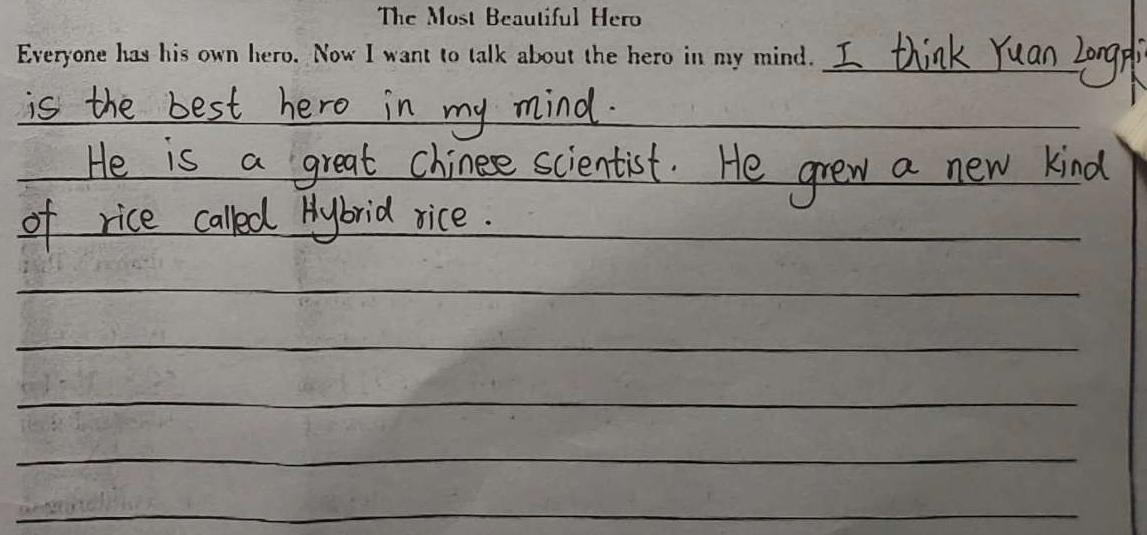 The Most Beautiful Hero
Everyone has his own hero. Now I want to talk about the hero in my mind. I think Yuan Longpi
is the best hero in my mind.
He is a great Chinese scientist. He grew a new kind
of rice called Hybrid rice.